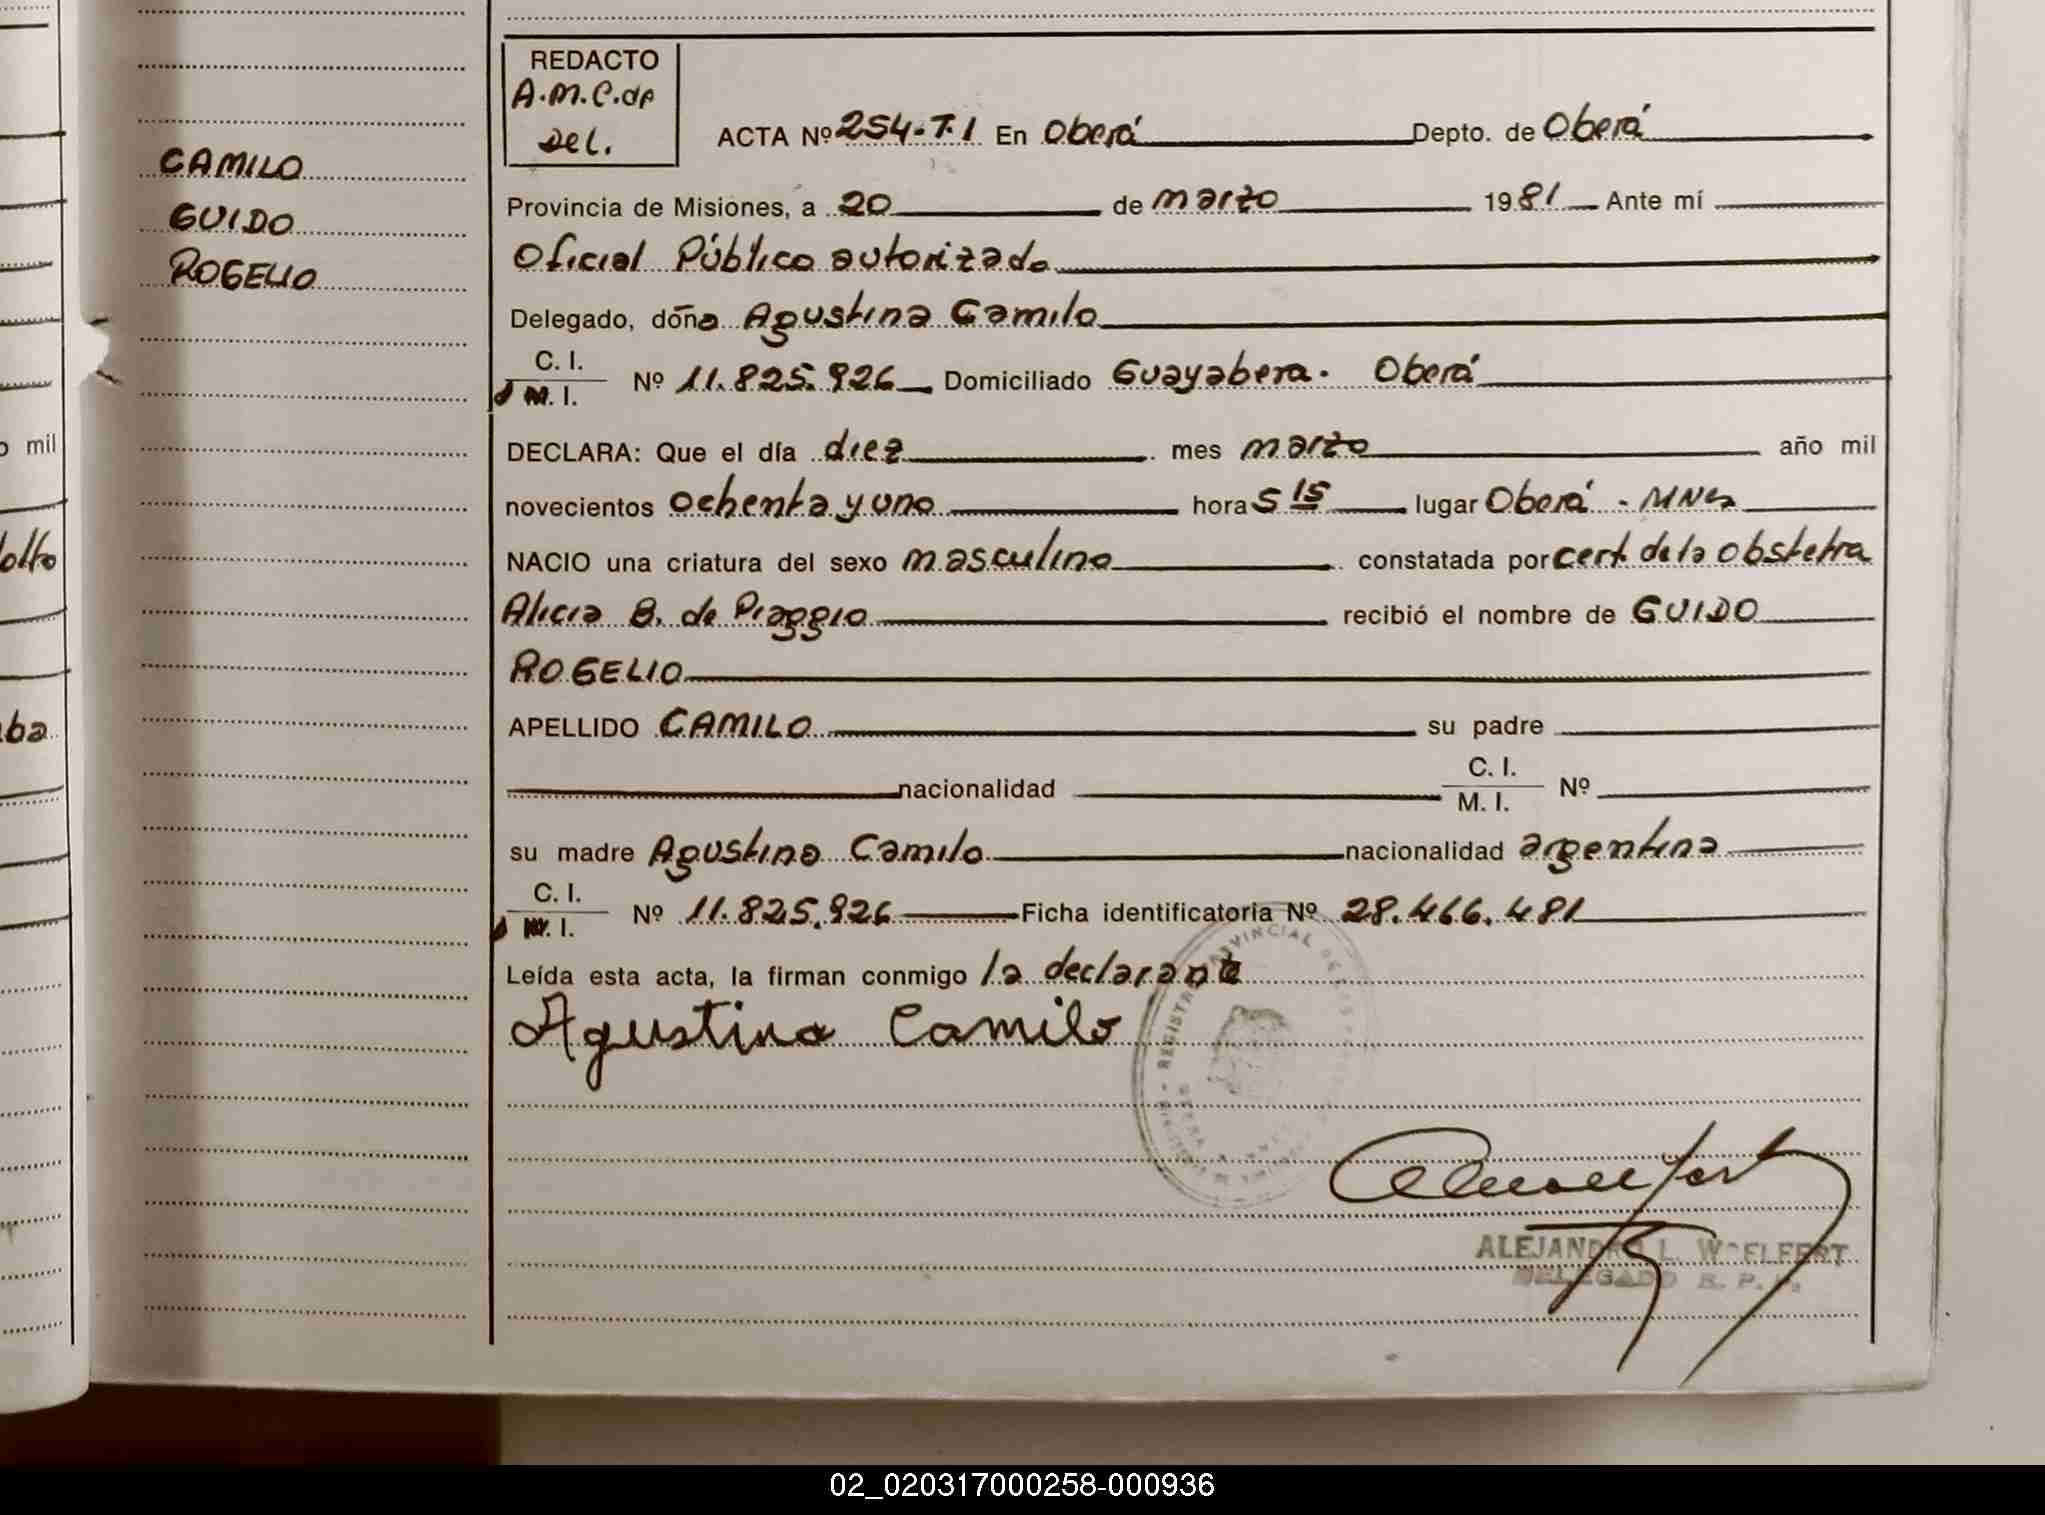 CAMILO
GUIDO
ROGELIO
REDACTO
A.M.C.de
Del.
ACTA Nº 254-T.1 En Oberá Depto. de Oberá
Provincia de Misiones, a 20 de marzo 1981 Ante mí
Oficial Público autorizado
Delegado, doña Agustina Camilo
C. I.
M. I. Nº 11.825.926 Domiciliado Guayabera. Oberá
DECLARA: Que el día diez mes marzo año mil
novecientos ochenta y uno hora 5 15 lugar Oberá - MNes
NACIO una criatura del sexo masculino constatada por cert. de la obstetra
Alicia B. de Piaggio recibió el nombre de GUIDO
ROGELIO
APELLIDO CAMILO su padre
nacionalidad C. I. M. I. Nº
su madre Agustina Camilo nacionalidad argentina
C. I.
M. I. Nº 11.825.926 Ficha identificatoria Nº 28.466.481
Leída esta acta, la firman conmigo la declarante
Agustina Camilo
ALEJANDRO L. WOELFERT
DELEGADO R. P. P.
02_020317000258-000936